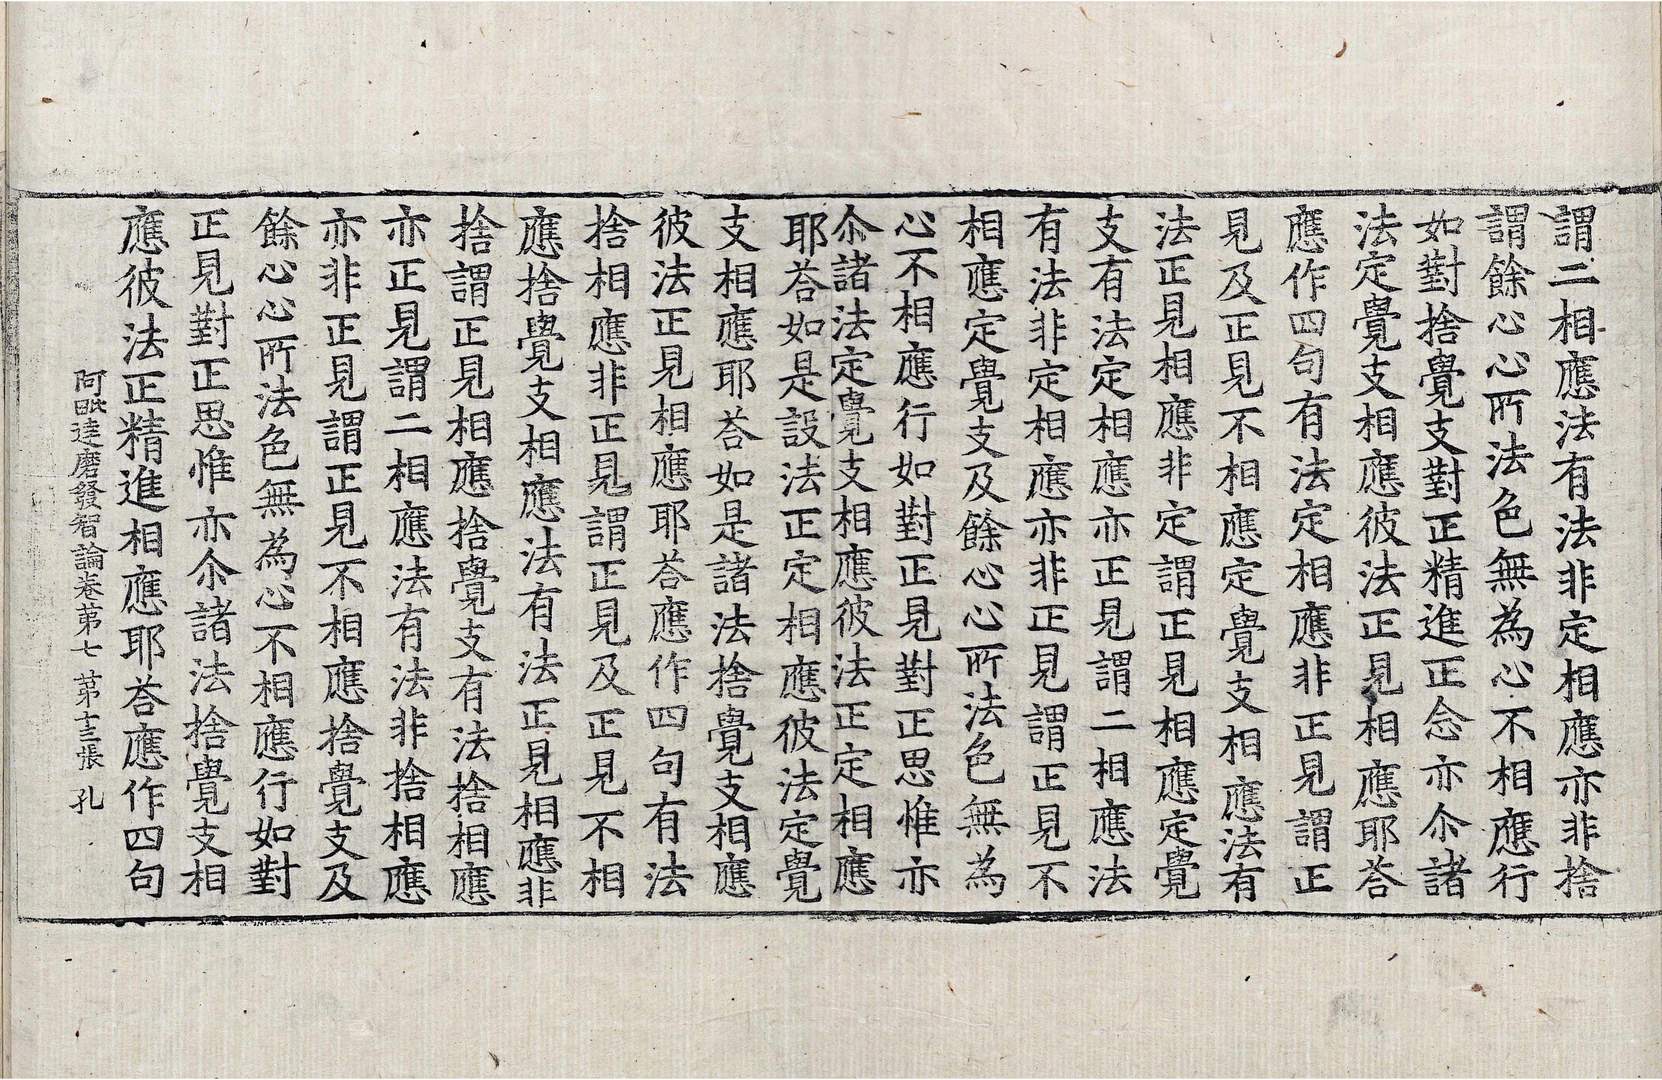 謂二相應法有法非定相應亦非捨
謂餘心心所法色無為心不相應行
如對捨覺支對正精進正念亦尒諸
法定覺支相應彼法正見相應耶荅
應作四句有法定相應非正見謂正
見及正見不相應定覺支相應法有
法正見相應非定謂正見相應定覺
支有法定相應亦正見謂二相應法
有法非定相應亦非正見謂正見不
相應定覺支及餘心心所法色無為
心不相應行如對正見對正思惟亦
尒諸法定覺支相應彼法正定相應
耶荅如是設法正定相應彼法定覺
支相應耶荅如是諸法捨覺支相應
彼法正見相應耶荅應作四句有法
捨相應非正見謂正見及正見不相
應捨覺支相應法有法正見相應非
捨謂正見相應捨覺支有法捨相應
亦正見謂二相應法有法非捨相應
亦非正見謂正見不相應捨覺支及
餘心心所法色無為心不相應行如對
正見對正思惟亦尒諸法捨覺支相
應彼法正精進相應耶荅應作四句
阿毗達磨發智論卷第七 第十三張 孔